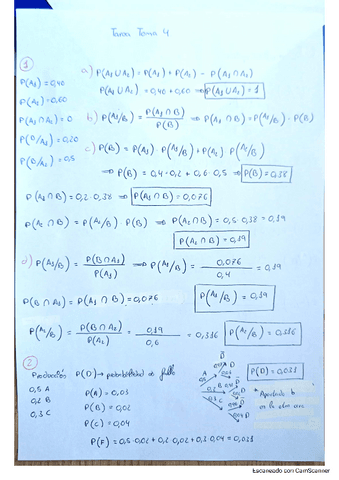 Tarea Tema 4
1
P(A₁) = 0,40
P(A₂) = 0,60
P(A₁ ∩ A₂) = 0
P(B/A₁) = 0,20
P(B/A₂) = 0,5
a) P(A₁ ∪ A₂) = P(A₁) + P(A₂) - P(A₁ ∩ A₂)
P(A₁ ∪ A₂) = 0,40 + 0,60 ⇒ P(A₁ ∪ A₂) = 1
b) P(A₁/B) = P(A₁ ∩ B) / P(B) ⇒ P(A₁ ∩ B) = P(A₁/B) · P(B)
c) P(B) = P(A₁) · P(A₁/B) + P(A₂) · P(A₂/B)
⇒ P(B) = 0,4 · 0,2 + 0,6 · 0,5 ⇒ P(B) = 0,38
P(A₁ ∩ B) = 0,2 · 0,38 ⇒ P(A₁ ∩ B) = 0,076
P(A₂ ∩ B) = P(A₂/B) · P(B) ⇒ P(A₂ ∩ B) = 0,5 · 0,38 = 0,19
P(A₂ ∩ B) = 0,19
d) P(A₁/B) = P(B ∩ A₁) / P(A₁) ⇒ P(A₁/B) = 0,076 / 0,4 = 0,19
P(B ∩ A₁) = P(A₁ ∩ B) = 0,076
P(A₁/B) = 0,19
P(A₂/B) = P(B ∩ A₂) / P(A₂) = 0,19 / 0,6 = 0,316
P(A₂/B) = 0,316
2
Producción
P(D) → probabilidad de fallo
P(D) = 0,031
0,5 A
0,2 B
0,3 C
P(A) = 0,03
P(B) = 0,02
P(C) = 0,04
P(F) = 0,5 · 0,02 + 0,2 · 0,02 + 0,3 · 0,04 = 0,031
Escaneado con CamScanner